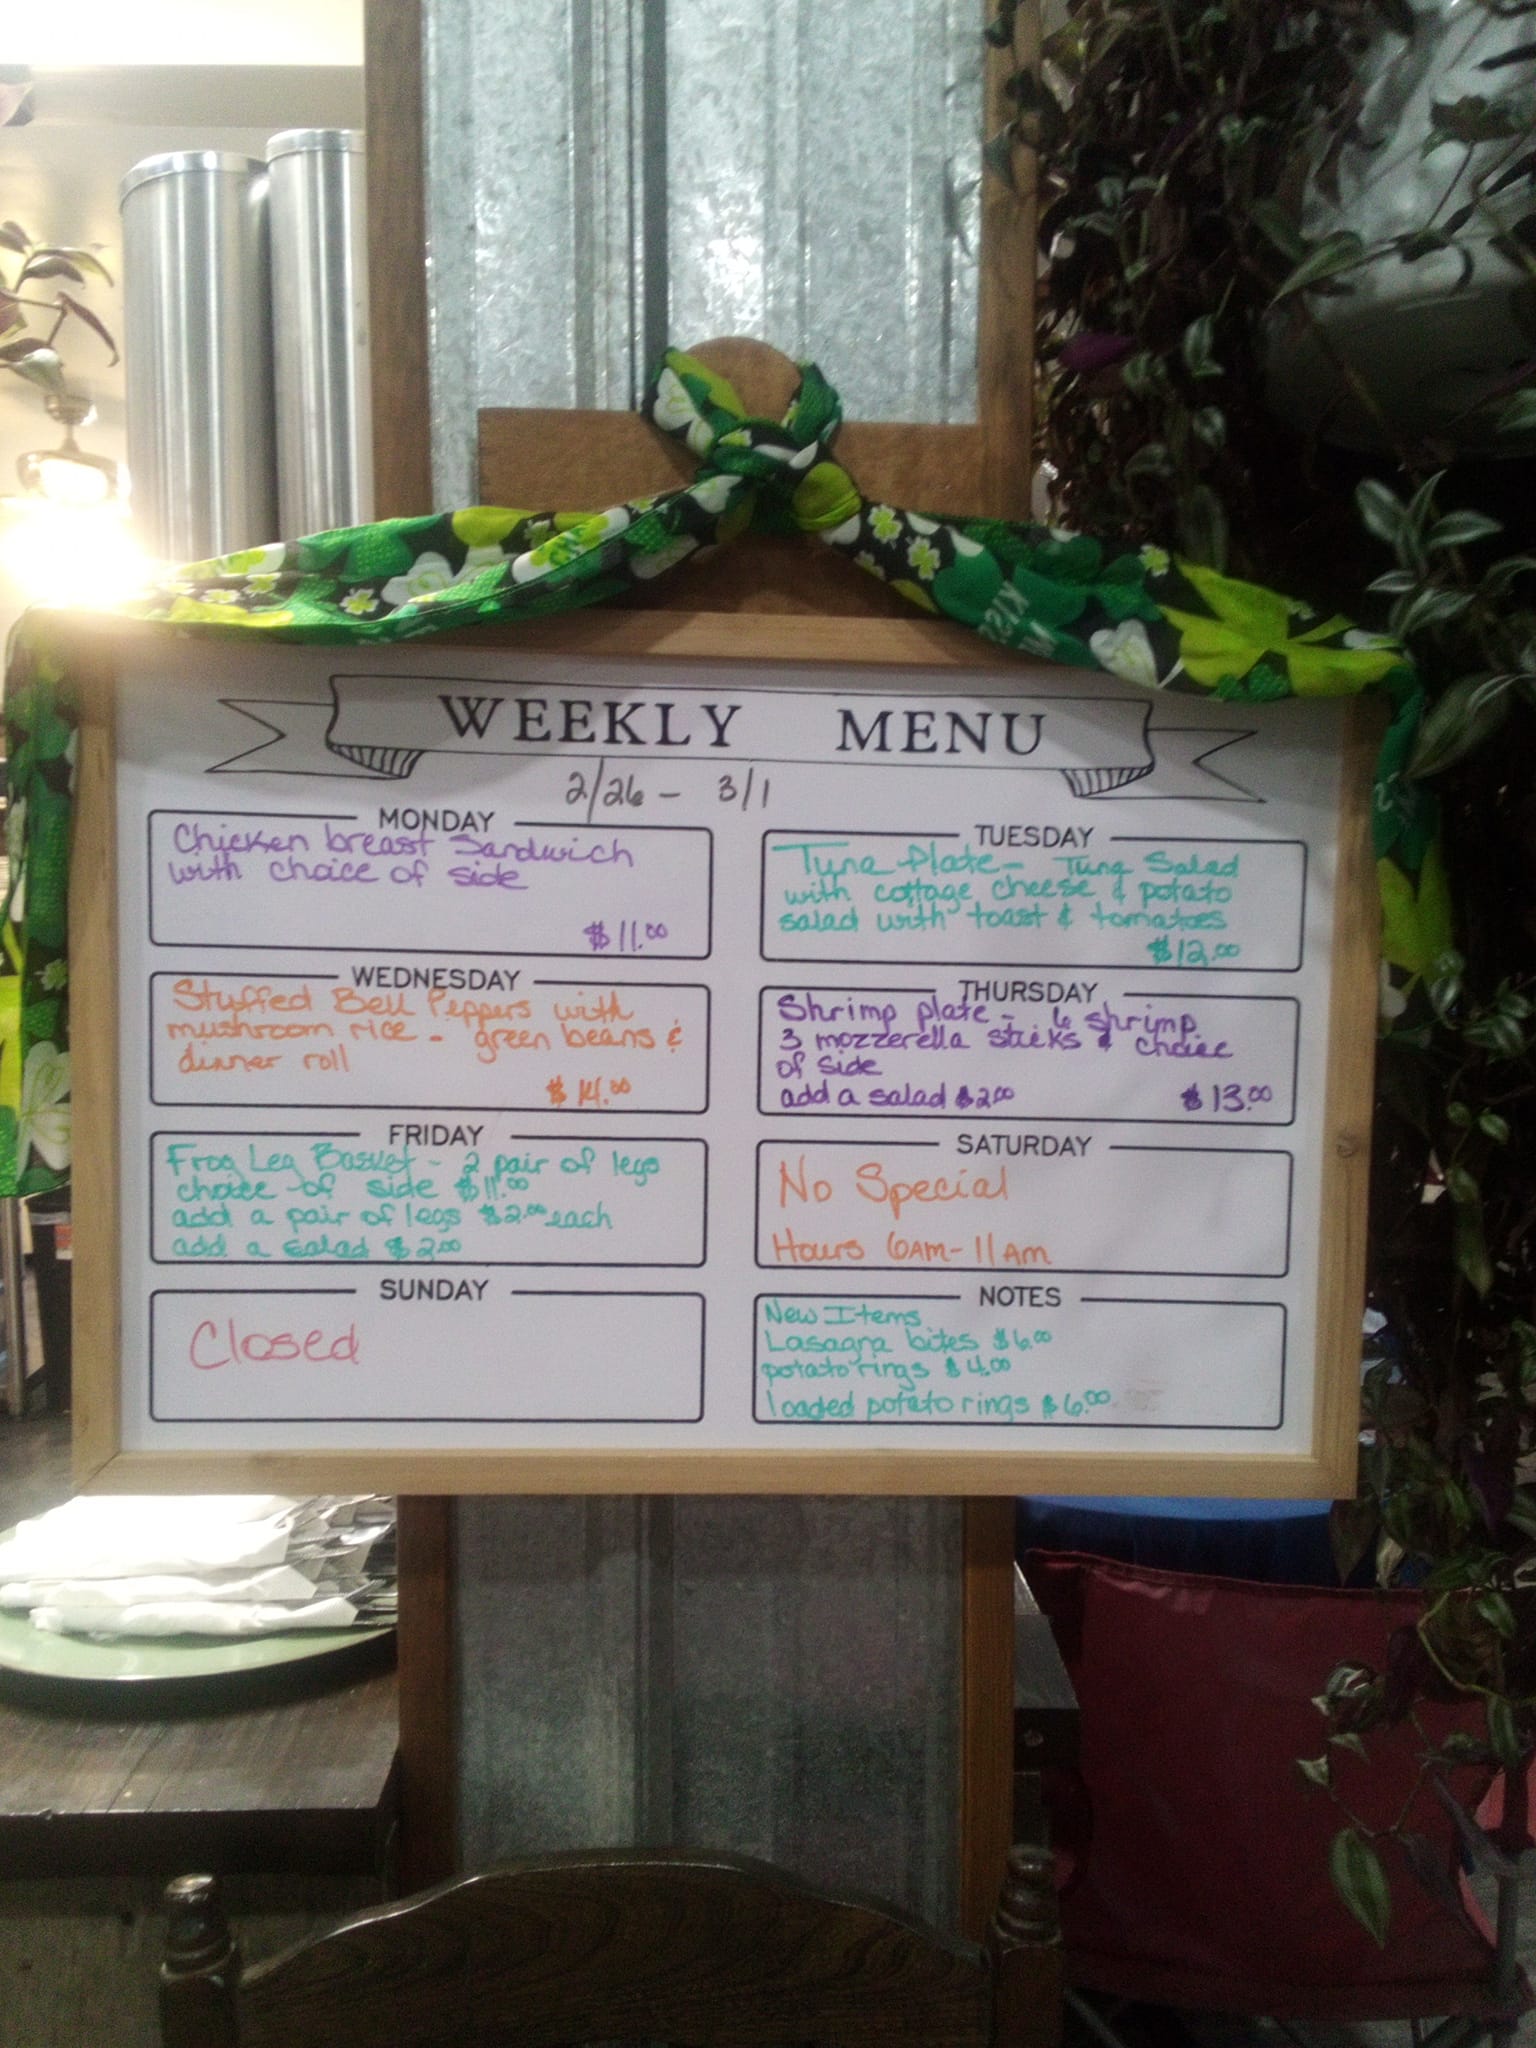 KISS
WEEKLY MENU
2/26 - 3/1
MONDAY
Chicken breast Sandwich
with choice of side
$11.00
TUESDAY
Tuna Plate - Tuna Salad
with cottage cheese & potato
salad with toast & tomatoes
$12.00
WEDNESDAY
Stuffed Bell Peppers with
mushroom rice - green beans &
dinner roll
$14.00
THURSDAY
Shrimp plate - 6 shrimp
3 mozzerella sticks & choice
of side
add a salad $2.00 $13.00
FRIDAY
Frog Leg Basket - 2 pair of legs
choice of side $11.00
add a pair of legs $2.00 each
add a salad $2.00
SATURDAY
No Special
Hours 6AM-11AM
SUNDAY
Closed
NOTES
New Items
Lasagna bites $6.00
potato rings $4.00
loaded potato rings $6.00